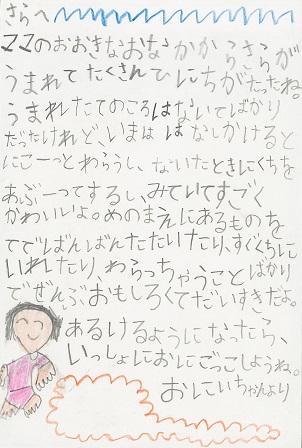 さらへ
ママのおおきなおなかからさらが
うまれてたくさんひにちがたったね。
うまれたてのころはないてばかり
だったけれど、いまははなしかけると
にこーっとわらうし、ないたときにくちを
あぶーってするし、みていてすごく
かわいいよ。めのまえにあるものを
てでばんばんたたいたり、すぐくちに
いれたり、わらっちゃうことばかり
でぜんぶおもしろくてだいすきだよ。
あるけるようになったら、
いっしょにおにごっこしようね。
おにいちゃんより